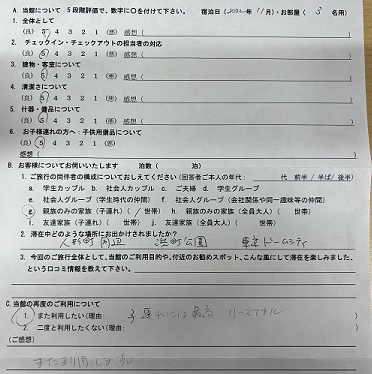 A. 当館について 5段階評価で、数字に○を付けて下さい。 宿泊日(2022年11月)・お部屋( 3 名用)
1. 全体として
(良) 5 4 3 2 1 (悪) 感想 (
2. チェックイン・チェックアウトの担当者の対応
(良) 5 4 3 2 1 (悪) 感想 (
3. 建物・客室について
(良) 5 4 3 2 1 (悪) 感想 (
4. 清潔さについて
(良) 5 4 3 2 1 (悪) 感想 (
5. 什器・備品について
(良) 5 4 3 2 1 (悪) 感想 (
6. お子様連れの方へ:子供用備品について
(良) 5 4 3 2 1 (悪)
感想 (
B. お客様についてお伺いいたします 泊数 ( 泊)
1. ご旅行の同伴者の構成についておしえてください(回答者ご本人の年代: 代 前半 / 半ば / 後半)
a. 学生カップル b. 社会人カップル c. ご夫婦 d. 学生グループ
e. 社会人グループ(学生時代の仲間) f. 社会人グループ(会社関係や同一趣味等の仲間)
g. 親族のみの家族(子連れ)( / 世帯) h. 親族のみの家族(全員大人)( 世帯)
i. 友達家族(子連れ)( 世帯) j. 友達家族(全員大人)( 世帯)
2. 滞在中どのような場所にお出かけされましたか?
人形町周辺 浜町公園 東京ドームシティ
3. 今回のご旅行全体として、当館のご利用目的や、付近のお勧めスポット、こんな風にして滞在を楽しみました、
という口コミ情報を教えて下さい。
C. 当館の再度のご利用について
1. また利用したい(理由: 子連れには最高 リーズナブル
2. 二度と利用したくない(理由:
(ご感想)
また利用します